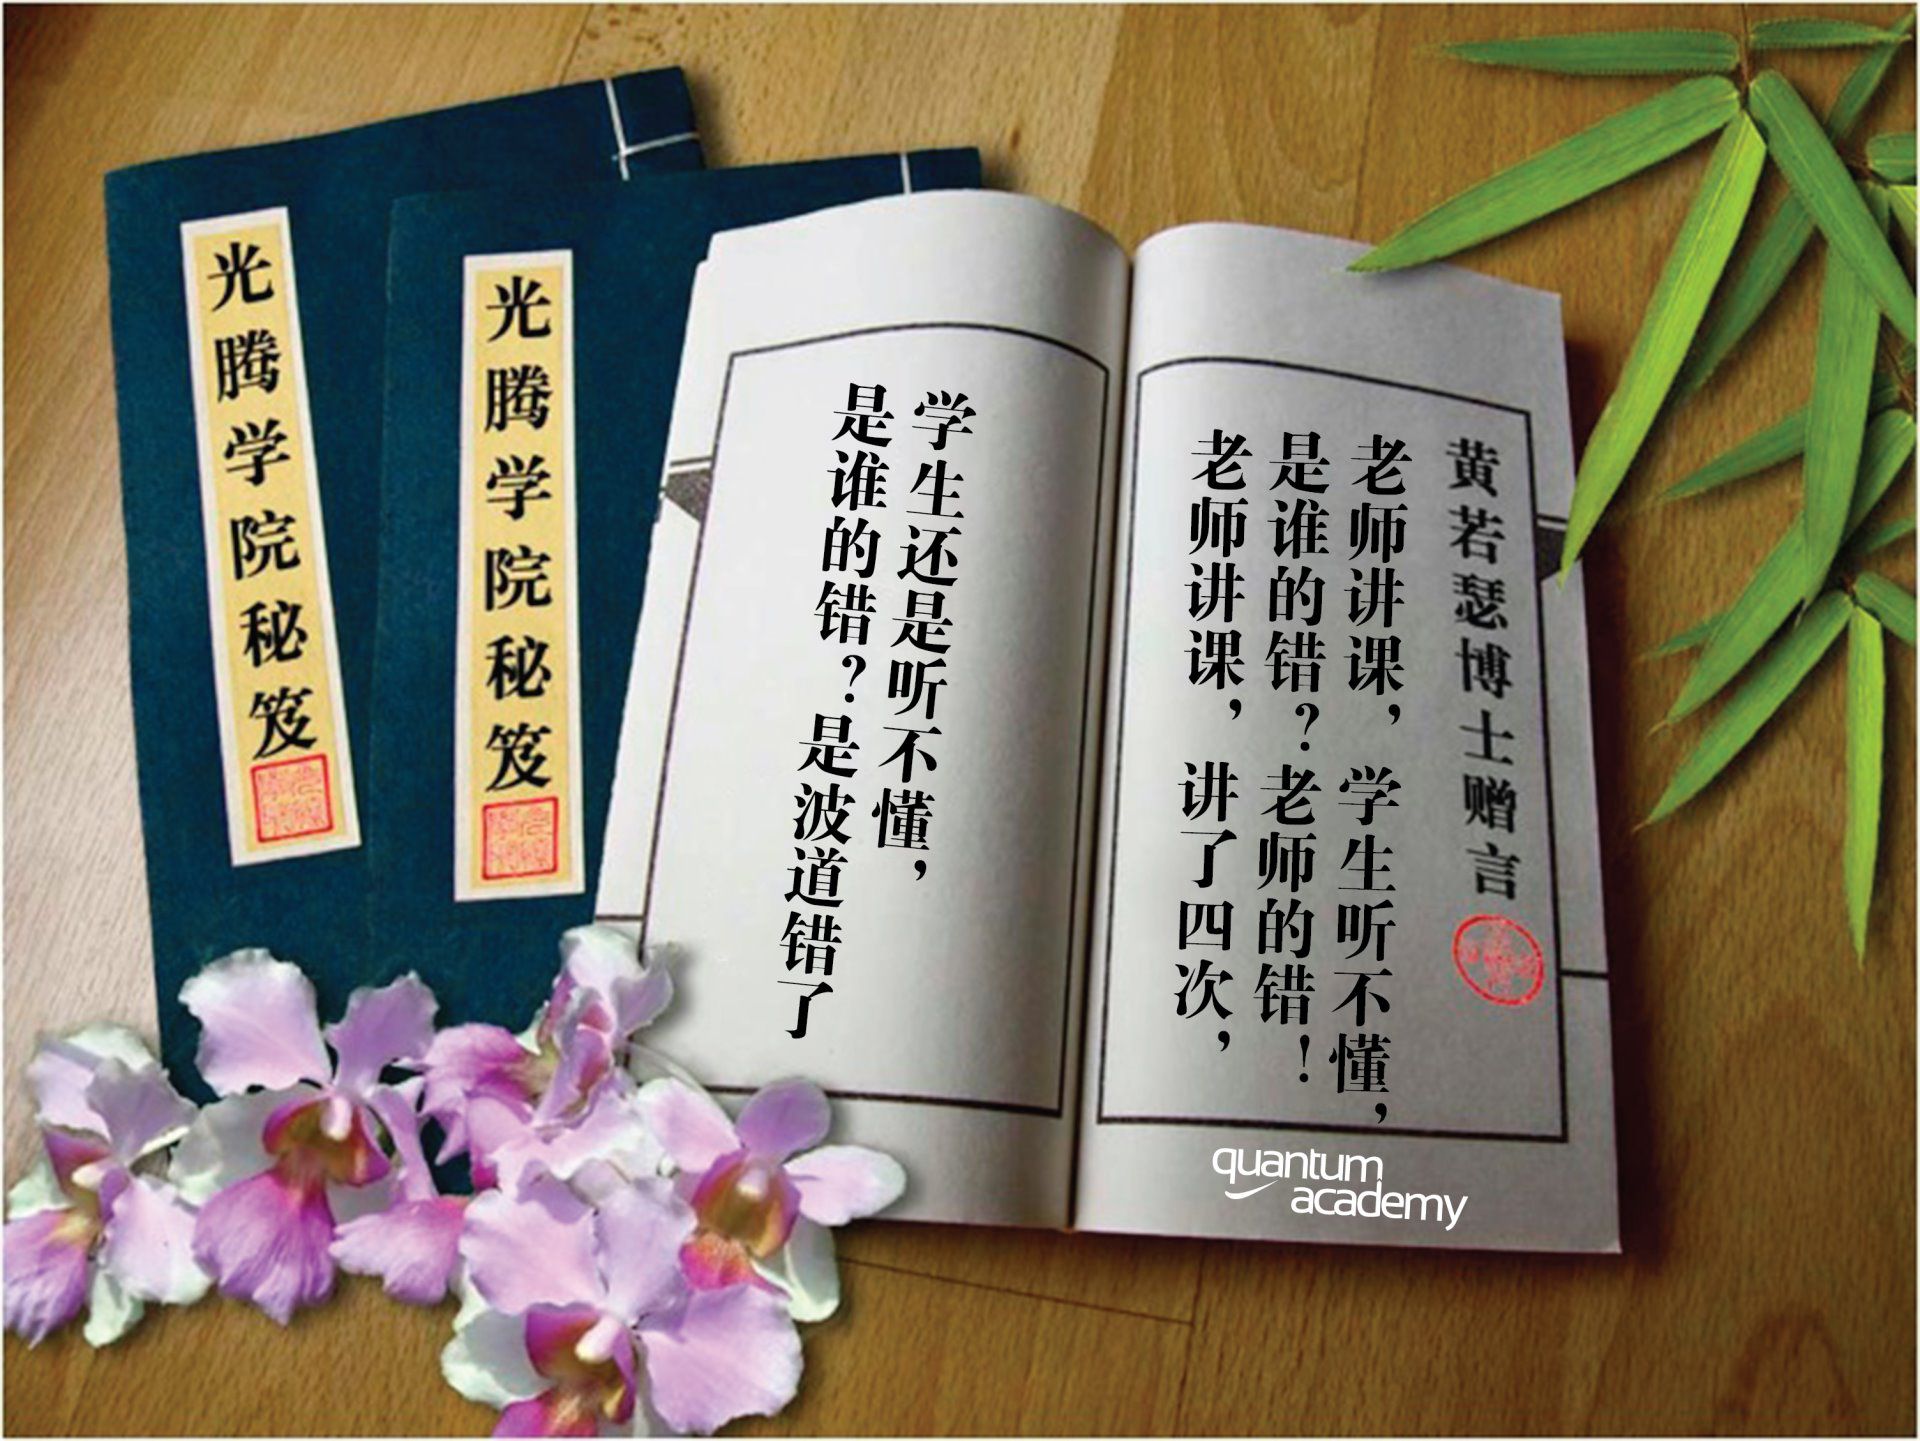 光腾学院秘笈
光腾学院秘笈
黄若瑟博士赠言
老师讲课，学生听不懂，
是谁的错？老师的错！
老师讲课，讲了四次，
学生还是听不懂，
是谁的错？是波道错了
quantum
academy